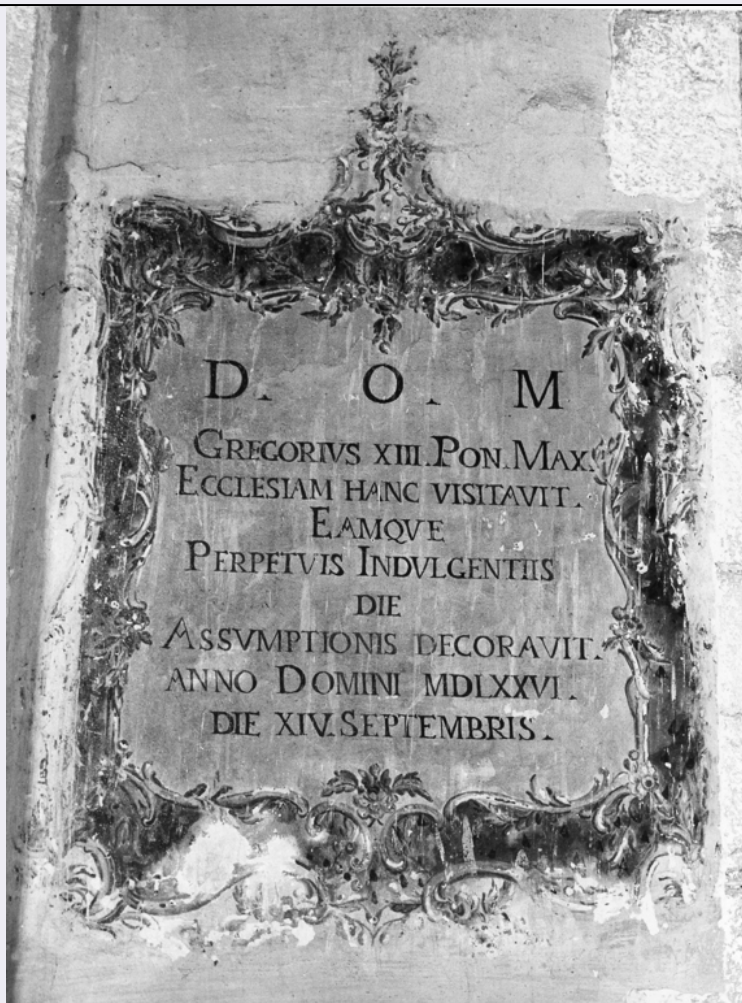 D. O. M
GREGORIVS XIII. PON. MAX.
ECCLESIAM HANC VISITAVIT.
EAMQVE
PERPETVIS INDVLGENTIIS
DIE
ASSVMPTIONIS DECORAVIT.
ANNO DOMINI MDLXXVI.
DIE XIV. SEPTEMBRIS.